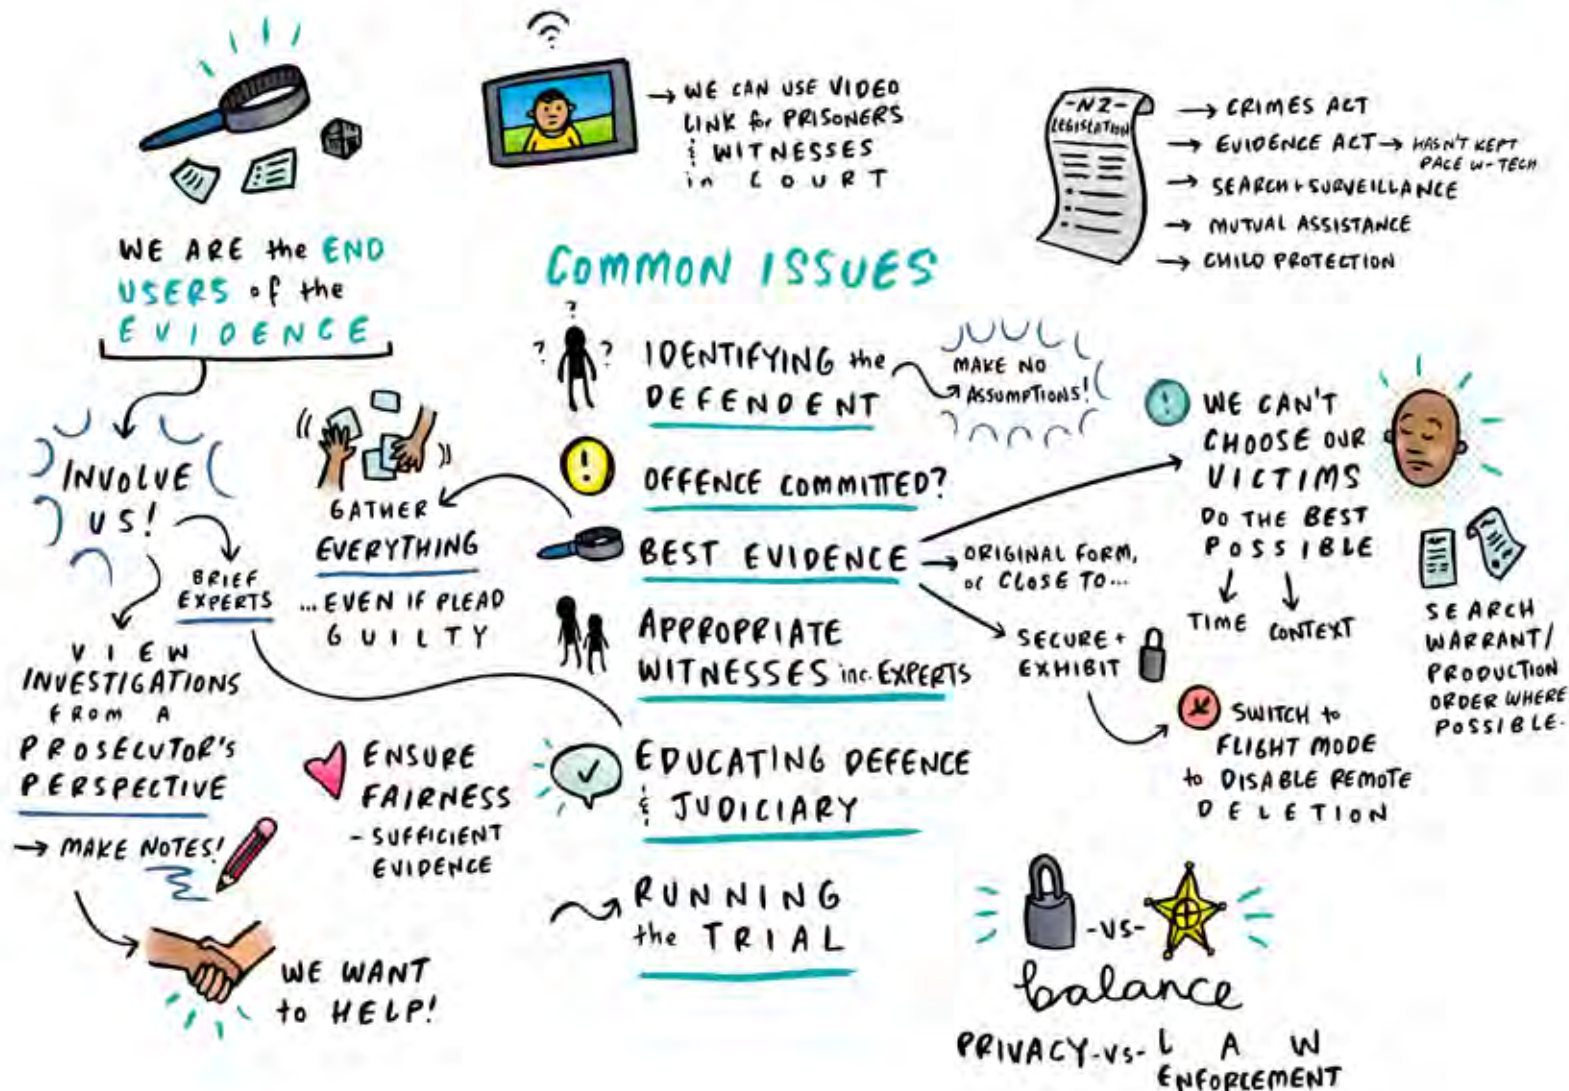 WE ARE the END
USERS of the
EVIDENCE
INVOLVE
US!
BRIEF
EXPERTS
VIEW
INVESTIGATIONS
FROM A
PROSECUTOR'S
PERSPECTIVE
→ MAKE NOTES!
WE WANT
to HELP!
GATHER
EVERYTHING
...EVEN IF PLEAD
GUILTY
ENSURE
FAIRNESS
- SUFFICIENT
EVIDENCE
→ WE CAN USE VIDEO
LINK for PRISONERS
& WITNESSES
in COURT
COMMON ISSUES
? ? ?
IDENTIFYING the
DEFENDENT
MAKE NO
ASSUMPTIONS!
!
OFFENCE COMMITTED?
BEST EVIDENCE
→ ORIGINAL FORM,
or CLOSE TO...
SECURE +
EXHIBIT
SWITCH to
FLIGHT MODE
to DISABLE REMOTE
DELETION
APPROPRIATE
WITNESSES inc. EXPERTS
EDUCATING DEFENCE
& JUDICIARY
RUNNING
the TRIAL
-NZ-
LEGISLATION
→ CRIMES ACT
→ EVIDENCE ACT → HASN'T KEPT
PACE W-TECH
→ SEARCH + SURVEILLANCE
→ MUTUAL ASSISTANCE
→ CHILD PROTECTION
!
WE CAN'T
CHOOSE OUR
VICTIMS
DO THE BEST
POSSIBLE
TIME CONTEXT
SEARCH
WARRANT/
PRODUCTION
ORDER WHERE
POSSIBLE.
-VS-
balance
PRIVACY-VS-LAW
ENFORCEMENT